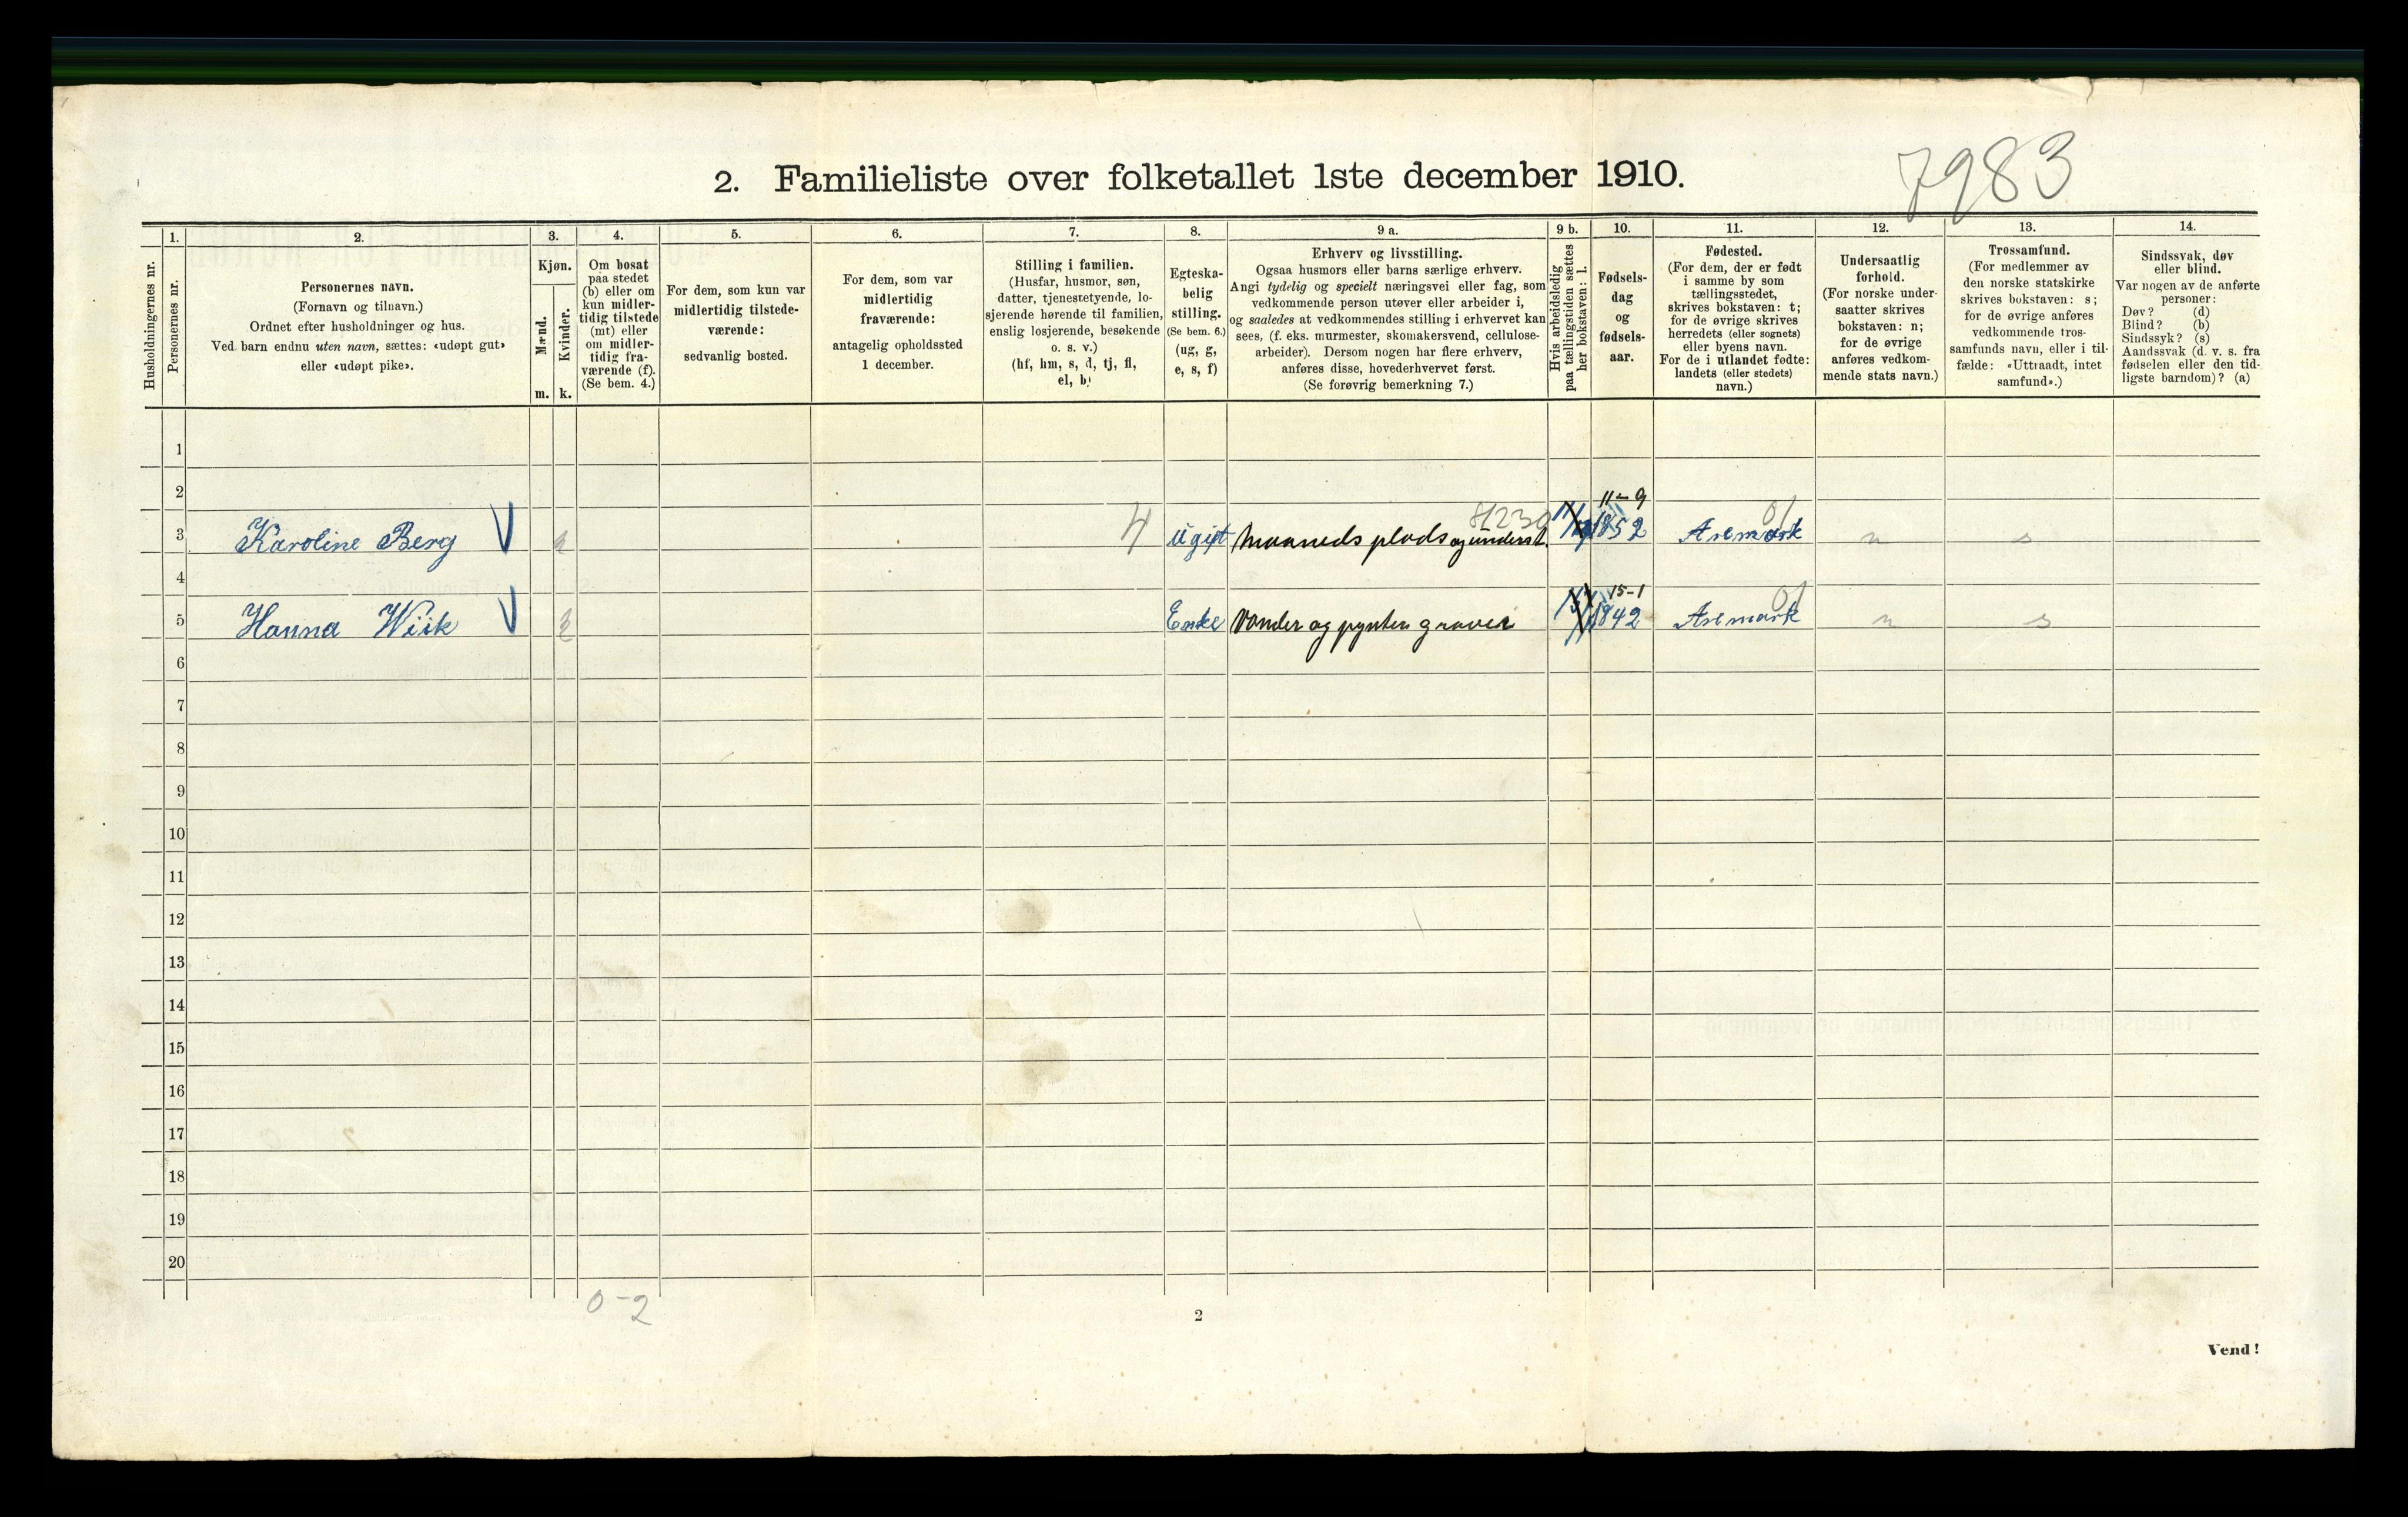 7983
2. Familieliste over folketallet 1ste december 1910.
Husholdningernes nr.
1.
Personernes nr.
2.
Personernes navn.
(Fornavn og tilnavn.)
Ordnet efter husholdninger og hus.
Ved barn endnu uten navn, sættes: «udøpt gut»
eller «udøpt pike».
3.
Kjøn.
Mænd.
Kvinder.
m. k.
4.
Om bosat
paa stedet
(b) eller om
kun midler-
tidig tilstede
(mt) eller
om midler-
tidig fra-
værende (f).
(Se bem. 4.)
5.
For dem, som kun var
midlertidig tilstede-
værende:
sedvanlig bosted.
6.
For dem, som var
midlertidig
fraværende:
antagelig opholdssted
1 december.
7.
Stilling i familien.
(Husfar, husmor, søn,
datter, tjenestetyende, lo-
sjerende hørende til familien,
enslig losjerende, besøkende
o. s. v.)
(hf, hm, s, d, tj, fl,
el, b)
8.
Egteska-
belig
stilling.
(Se bem. 6.)
(ug, g,
e, s, f)
9 a.
Erhverv og livsstilling.
Ogsaa husmors eller barns særlige erhverv.
Angi tydelig og specielt næringsvei eller fag, som
vedkommende person utøver eller arbeider i,
og saaledes at vedkommendes stilling i erhvervet kan
sees, (f. eks. murmester, skomakersvend, cellulose-
arbeider). Dersom nogen har flere erhverv,
anføres disse, hovederhvervet først.
(Se forøvrig bemerkning 7.)
9 b.
Hvis arbeidsledig
paa tællingstiden sættes
her bokstaven: l.
10.
Fødsels-
dag
og
fødsels-
aar.
11.
Fødested.
(For dem, der er født
i samme by som
tællingsstedet,
skrives bokstaven: t;
for de øvrige skrives
herredets (eller sognets)
eller byens navn.
For de i utlandet fødte:
landets (eller stedets)
navn.)
12.
Undersaatlig
forhold.
(For norske under-
saatter skrives
bokstaven: n;
for de øvrige
anføres vedkom-
mende stats navn.)
13.
Trossamfund.
(For medlemmer av
den norske statskirke
skrives bokstaven: s;
for de øvrige anføres
vedkommende tros-
samfunds navn, eller i til-
fælde: «Uttraadt, intet
samfund».)
14.
Sindssvak, døv
eller blind.
Var nogen av de anførte
personer:
Døv? (d)
Blind? (b)
Sindssyk? (s)
Aandssvak (d. v. s. fra
fødselen eller den tid-
ligste barndom)? (a)
1
2
11-9
81230 01
3 Karoline Berg V Ugift Maaneds plads og underst. 1852 Aremark n s
4
15-1
01
5 Hanna Wiik V Enke Vander og pynter graver 1842 Aremark n s
6
7
8
9
10
11
12
13
14
15
16
17
18
19
20
0-2
2
Vend!